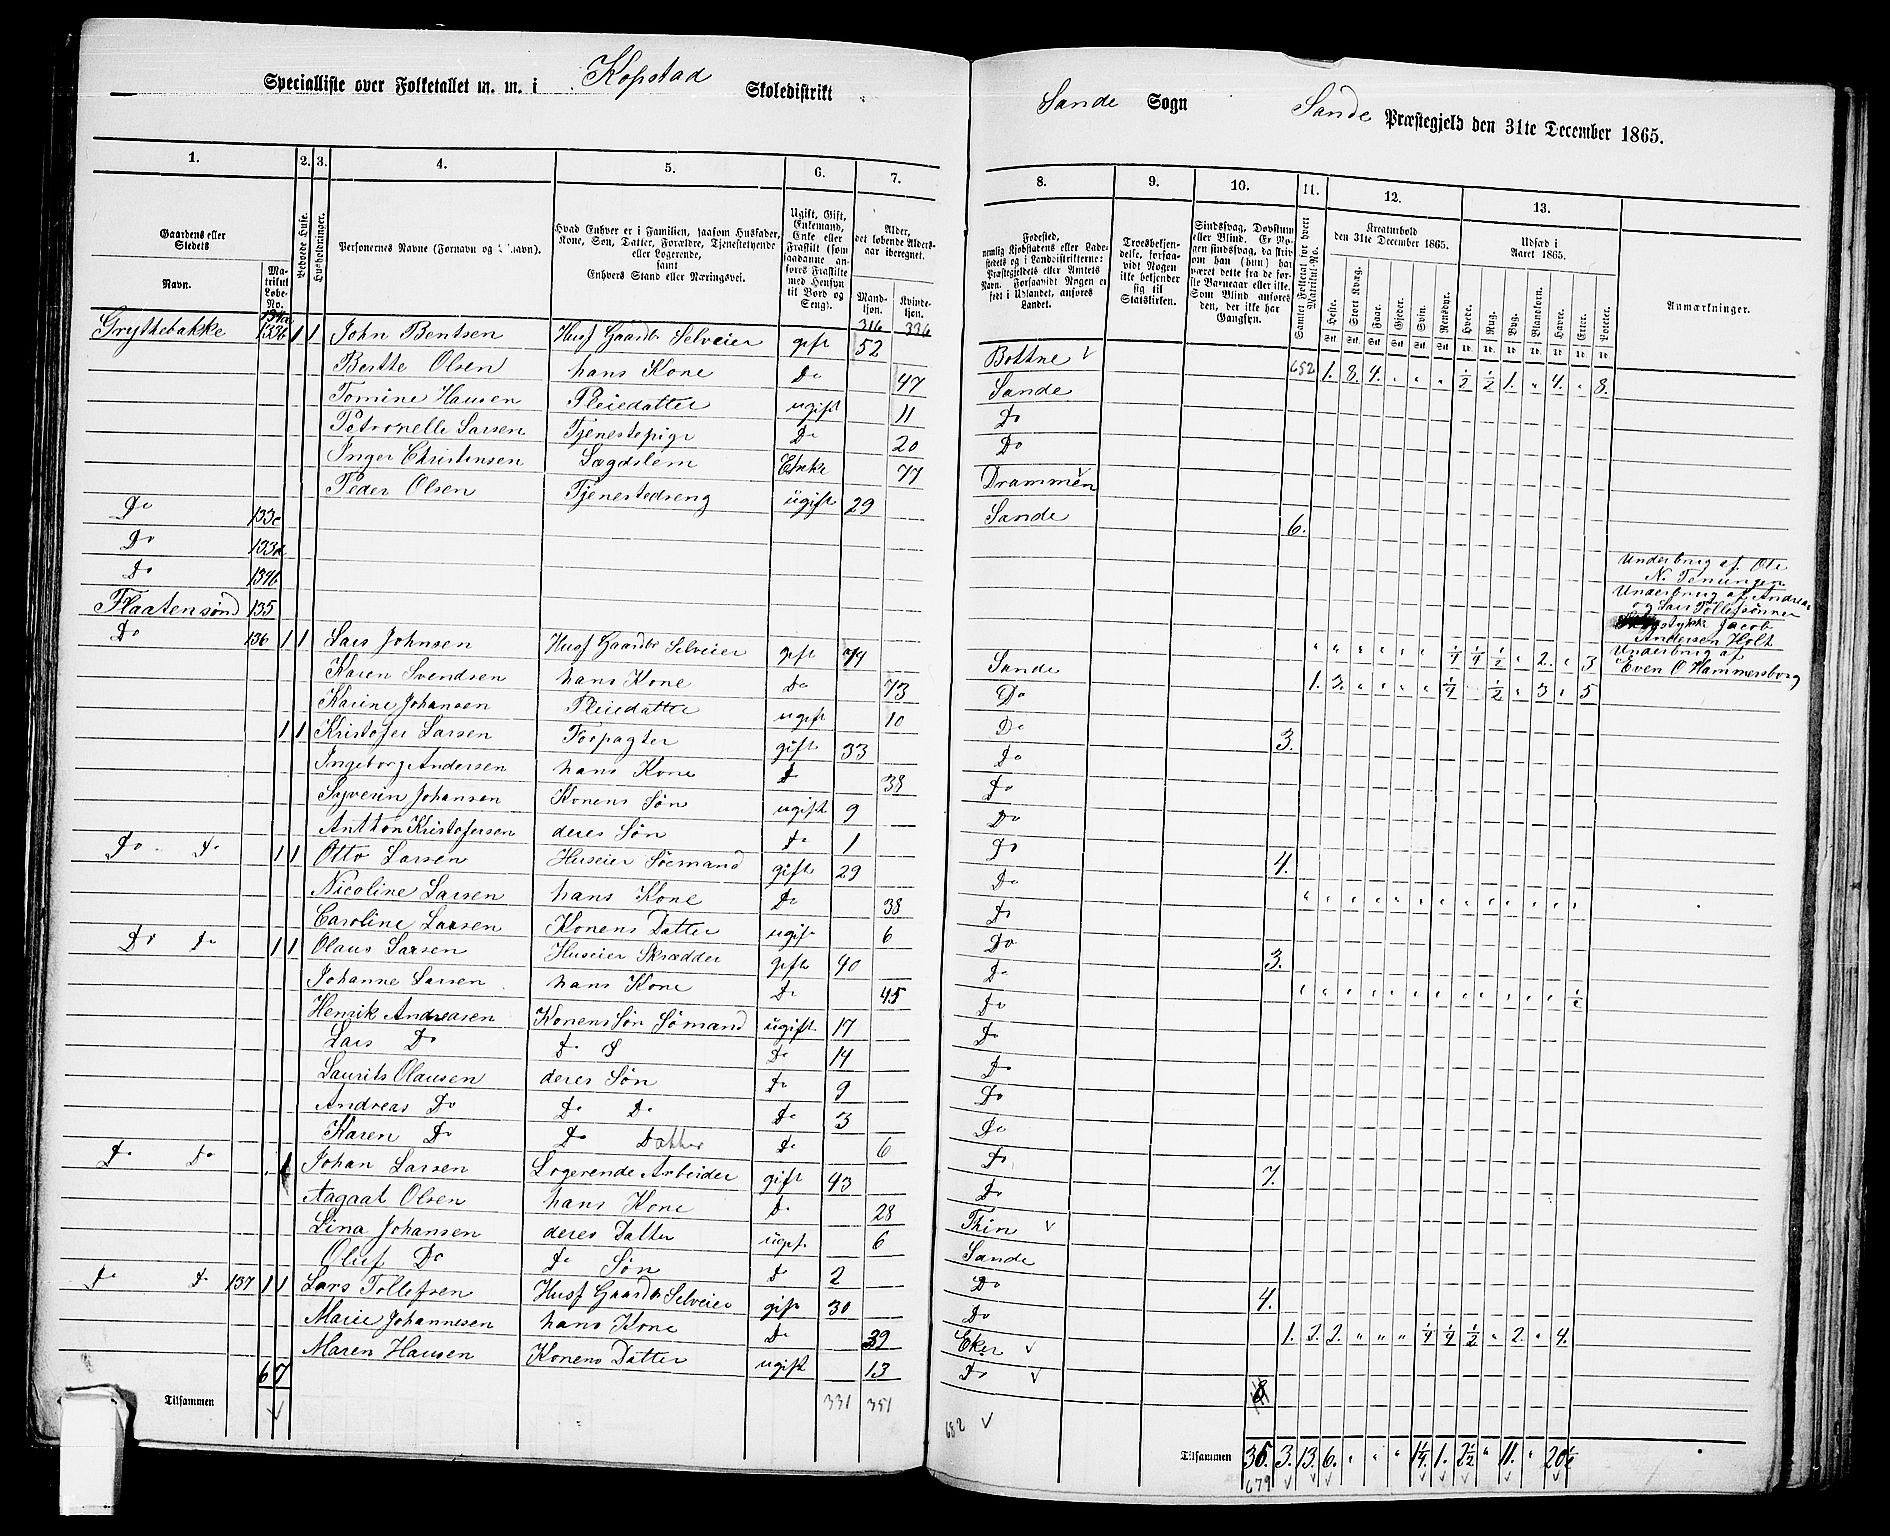 Specialliste over Folketallet m. m. i Kopstad Skoledistrikt
Sande Sogn Sande Præstegjeld den 31te December 1865.
1. 2. 3. 4. 5. 6. 7.
8. 9. 10. 11. 12. 13.
Gaardens eller Stedets
Navn.
Matrikul Løbe-No.
Beboede Huse.
Husholdninger.
Personernes Navne (Fornavn og Tilnavn).
Hvad Enhver er i Familien, saasom Husfader, Kone, Søn, Datter, Forældre, Tjenestetyende eller Logerende, samt Enhvers Stand eller Næringsvei.
Ugift, Gift, Enkemand, Enke eller Fraskilt (som saadanne anføres Fraskilte med Hensyn til Bord og Seng).
Alder, det løbende Alders-aar iberegnet.
Mandkjøn. Kvindekjøn.
Fødested, nemlig Kjøbstadens eller Ladestedets og i Landdistrikterne: Præstegjeldets eller Amtets Navn. Forsaavidt Nogen er født i Udlandet, anføres Landet.
Troesbekjendelse, forsaavidt Nogen ikke bekjender sig til Statskirken.
Sindssvag, Døvstum eller Blind. Er Nogen sindssvag, da skrives om han (hun) har været dette fra de første Barneaar eller ikke. Som Blind ansøres den, der ikke har Gangsyn.
Samlet Folketal for hvert Matrikul-No.
Kreaturhold den 31te December 1865.
Heste. Stort Kvæg. Faar. Gjeder. Svin. Rensdyr.
Udsæd i Aaret 1865.
Hvede. Rug. Byg. Blandkorn. Havre. Erter. Poteter.
Anmærkninger.
316 336
Gryttebakke 133b 1 1 John Bentsen Husf Gaardbr Selveier gift 52 Bottne 652 1. 8. 4. " " " ½ ½ 1. " 4. " 8.
Berthe Olsen hans Kone Do 47 Sande
Tomine Hansen Pleiedatter ugift 11 Do
Petronelle Larsen Tjenestepige Do 20 Do
Inger Christensen Lægdslem Enke 77 Drammen
Peder Olsen Tjenestedreng ugift 29 Sande 6.
Do 133c
Do 133d
Do 134b Underbrug af Ole N.
Flaatensønd 135 Underbrug af Andreas og Lars Tollefsønner
Do 136 1 1 Lars Johnsen Husf Gaardbr Selveier gift 74 Sande
Jacob Andersen Holt
Underbrug af Even O Hammersborg
" " " " " " ¼ ¼ ½ " 2. " 3
1. 3. " " " " ¼ ½ " 3 " 5
Karen Svendsen hans Kone Do 73 Do
Karine Johansen Pleiedatter ugift 10 Do 3.
1 1 Kristofer Larsen Forpagter gift 33 Do
Ingeborg Andersen hans Kone Do 38 Do
Syverin Johansen Konens Søn ugift 9 Do
Antton Kristofersen deres Søn Do 1 Do 4.
Do Do 1 1 Otto Larsen Huseier Søemand gift 29 Do
Nicoline Larsen hans Kone Do 38 Do
Caroline Larsen Konens Datter ugift 6 Do 3.
Do Do 1 1 Olaus Larsen Huseier Skrædder gift 40 Do
Johanne Larsen hans Kone Do 45 Do
Henrik Andreasen Konens Søn Sømand ugift 17 Do
Lars Do Do S Do 14 Do
Laurits Olausen deres Søn Do 9 Do
Andreas Do Do Do Do 3 Do
Karen Do Do Datter Do 6 Do 7.
Do Do 1 Johan Larsen Logerende Arbeider gift 43 Do
Aagaat Olsen hans Kone Do 28 Thin
Lina Johansen deres Datter ugift 6 Sande
Oluf Do Do Søn Do 2 Do 4.
Do Do 137 1 1 Lars Tollefsen Husf Gaardbr Selveier gift 30 Do 1. 2. 2. " " " ¼ ¼ ½ " 2. " 4.
Marie Johannesen hans Kone Do 39 Eker
Maren Hansen Konens Datter ugift 13 Do
6 7
Tilsammen 331 351
682
Tilsammen 35 3. 13. 6. " " " 1¼ 1. 2½ " 11. " 20½
679